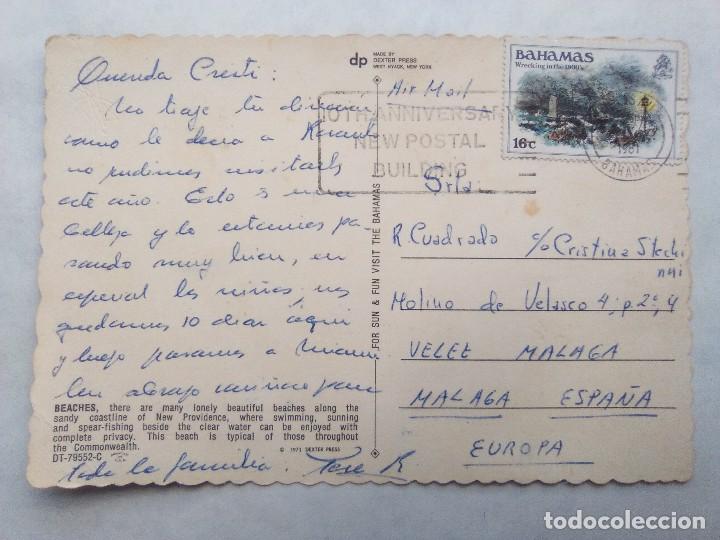 Querida Cresti:
no pudimos
este año. Esto es una
belleza y lo estamos pa-
sando muy bien, en
especial los niños, nos
quedamos 10 dias aqui
y luego pasamos a Miami
Un abrazo cariñoso para
toda la familia.
BEACHES, there are many lonely beautiful beaches along the
sandy coastline of New Providence, where swimming, sunning
and spear-fishing beside the clear water can be enjoyed with
complete privacy. This beach is typical of those throughout
the Commonwealth.
DT-79552-C
© 1973 DEXTER PRESS
dp
MADE BY
DEXTER PRESS
WEST NYACK, NEW YORK
FOR SUN & FUN VISIT THE BAHAMAS
Air Mail
10TH ANNIVERSARY
NEW POSTAL
BUILDING
BAHAMAS
Wrecking in the 1800's
16c
1981
BAHAMAS
Srta.
R. Cuadrado c/o Cristina
Molino de Velasco 4, p. 2º, 4
VELEZ MALAGA
MALAGA ESPAÑA
EUROPA
todocoleccion
todocoleccion.net